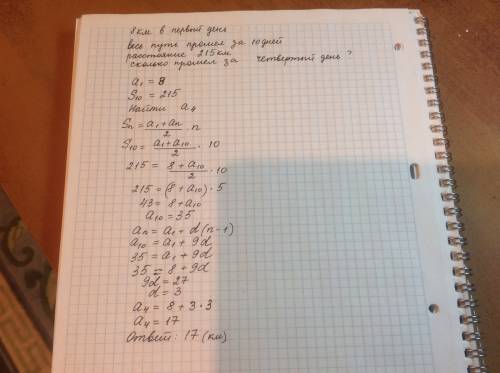 8 км в первый день
весь путь прошел за 10 дней
расстояние 215 км
сколько прошел за четвертый день?
a₁ = 8
S₁₀ = 215
Найти a₄
Sₙ = (a₁ + aₙ)/2 · n
S₁₀ = (a₁ + a₁₀)/2 · 10
215 = (8 + a₁₀)/2 · 10
215 = (8 + a₁₀) · 5
43 = 8 + a₁₀
a₁₀ = 35
aₙ = a₁ + d(n-1)
a₁₀ = a₁ + 9d
35 = a₁ + 9d
35 = 8 + 9d
9d = 27
d = 3
a₄ = 8 + 3 · 3
a₄ = 17
Ответ: 17 (км)